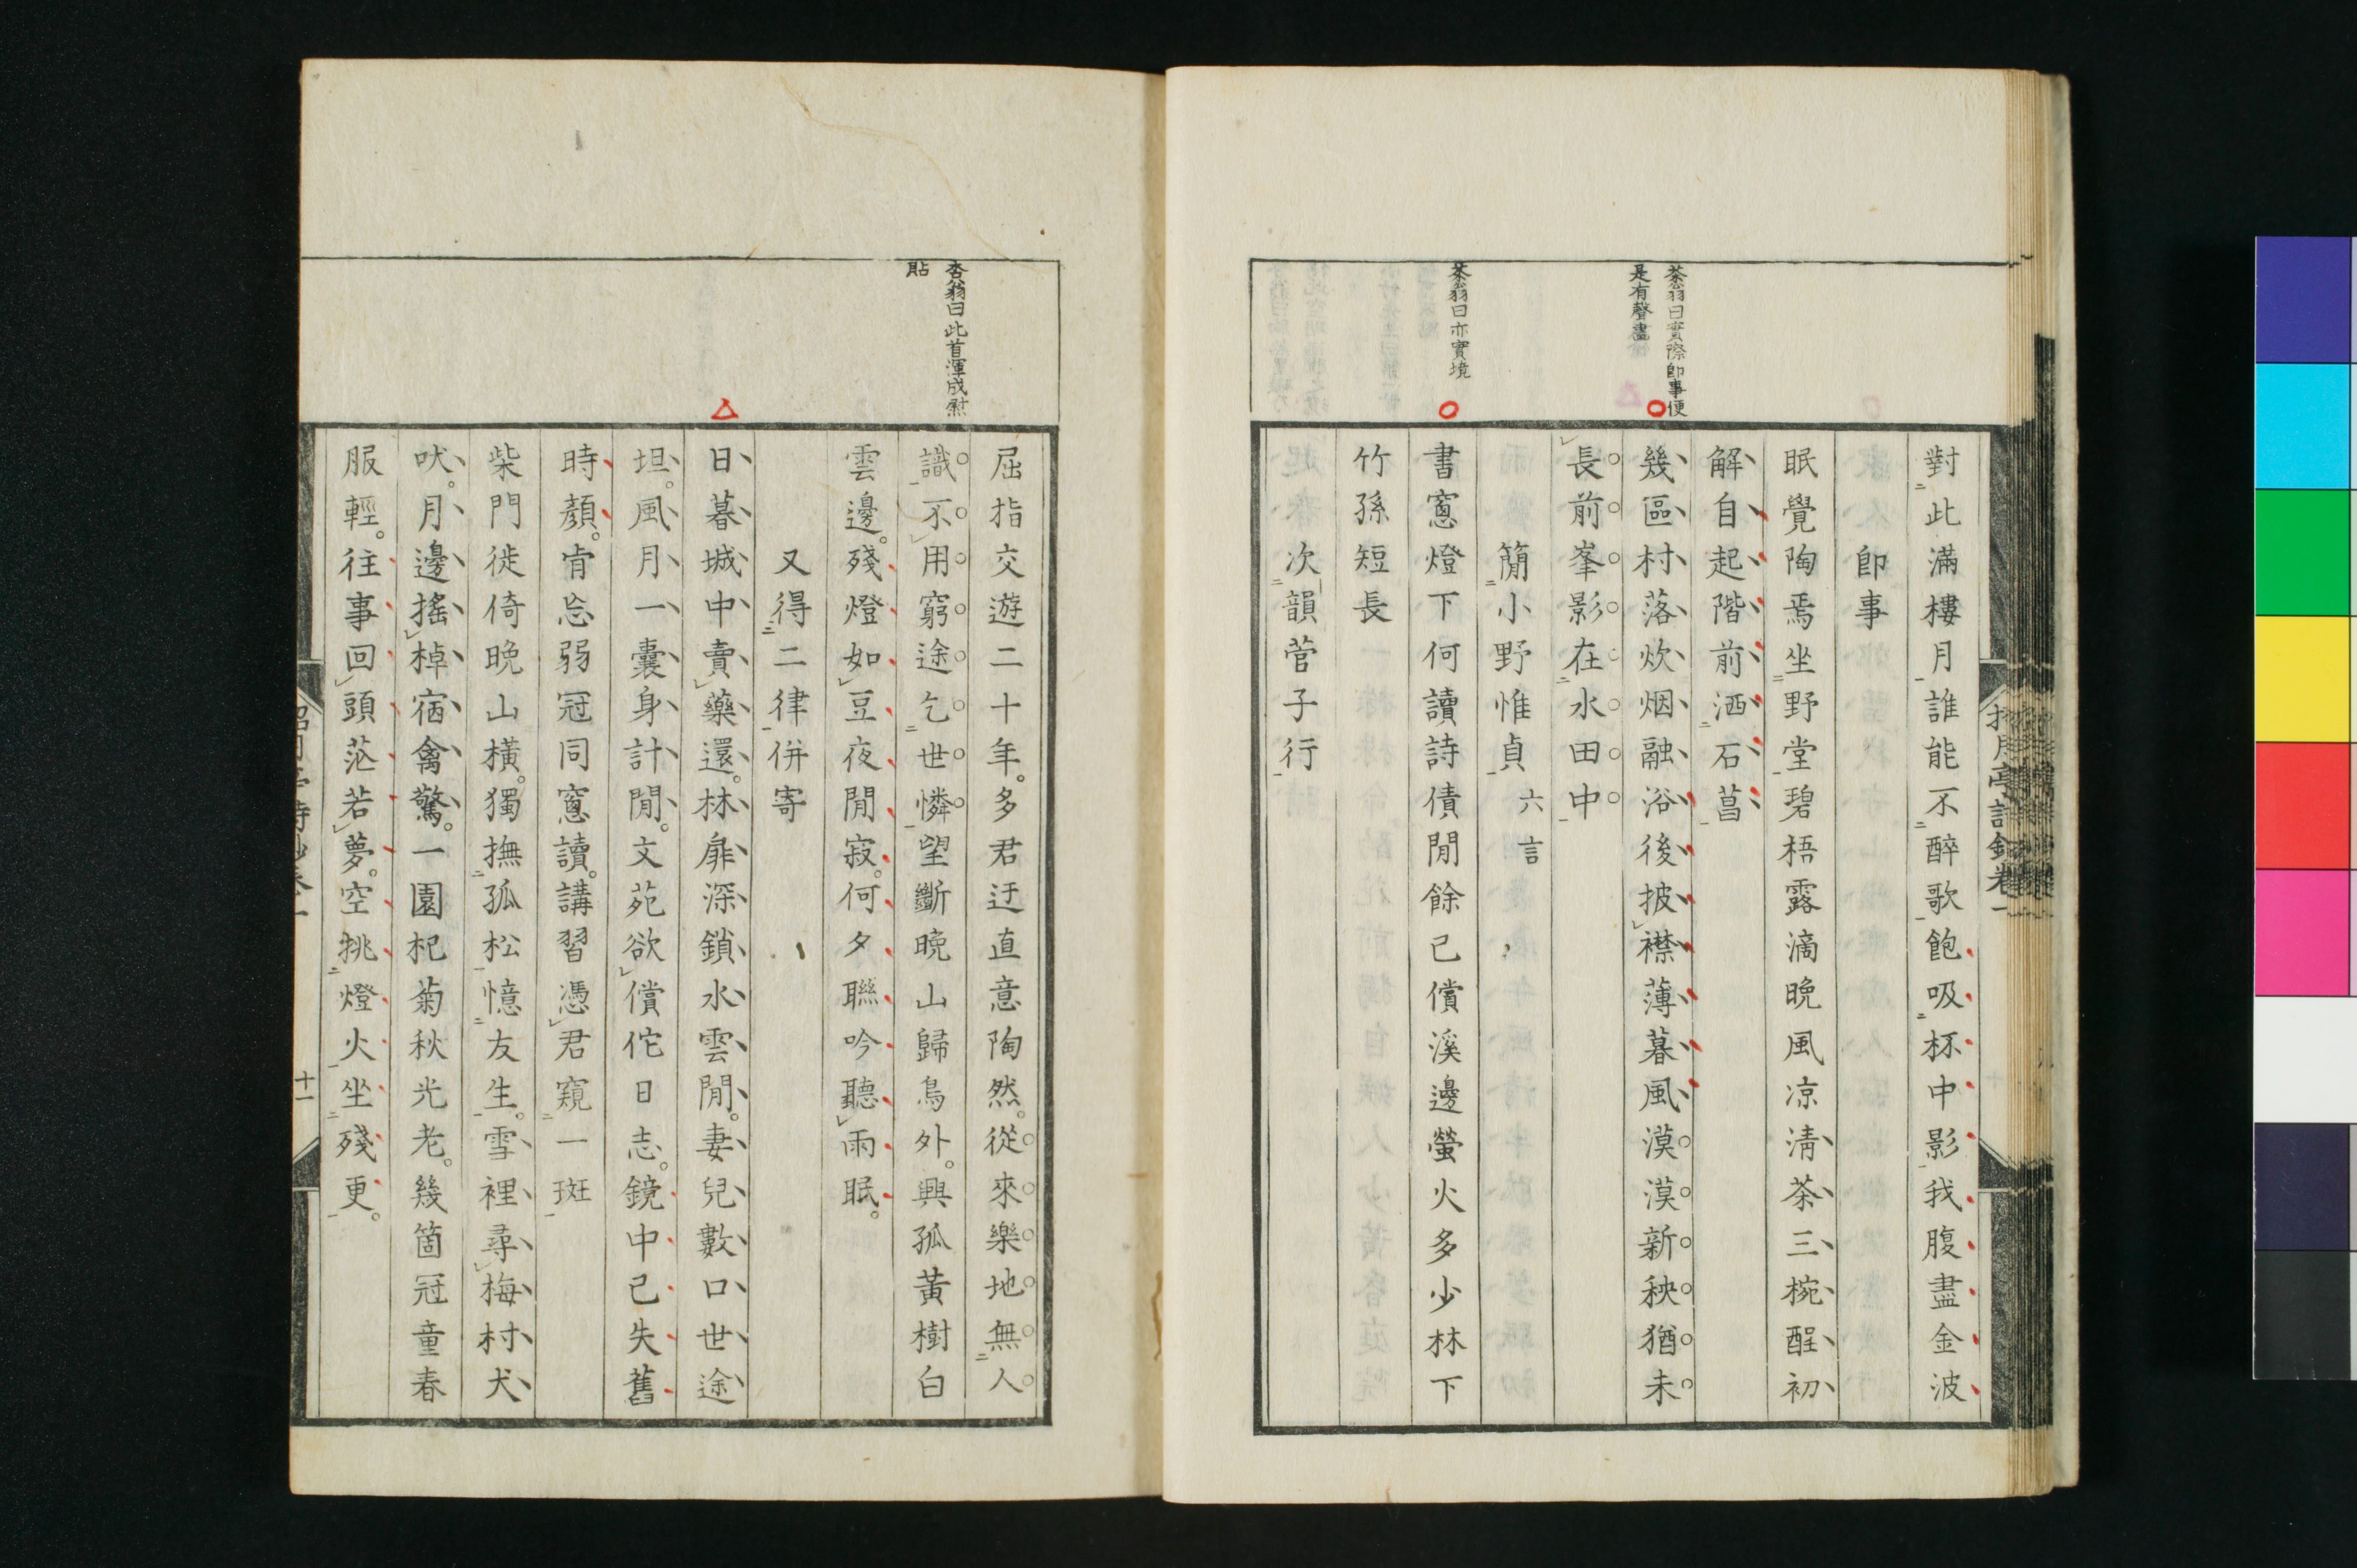 對此滿樓月誰能不醉歌飽吸杯中影我腹盡金波
即事
眠覺陶焉坐野堂碧梧露滴晚風凉淸茶三椀酲初
解自起階前洒石菖
茶翁曰實際即事便
是有聲畫
幾區村落炊烟融浴後披襟薄暮風漠漠新秧猶未
長前峯影在水田中
簡小野惟貞 六言
茶翁曰亦實境
書窻燈下何讀詩債閒餘已償溪邊螢火多少林下
竹孫短長
次韻菅子行
屈指交遊二十年。多君迂直意陶然。從來樂地無人
杏翁曰此首渾成慰
貼
識不用窮途乞世憐望斷晩山歸鳥外。興孤黃樹白
雲邊。殘燈如豆夜閒寂。何夕聯吟聽雨眠。
又得二律併寄
日暮城中賣藥還。林扉深鎖水雲閒。妻兒數口世途
坦。風月一囊身計閒。文苑欲償佗日志。鏡中已失舊
時顏。肯忘弱冠同窻讀。講習憑君窺一斑
柴門徙倚晩山橫。獨撫孤松憶友生。雪裡尋梅村犬
吠。月邊搖棹宿禽驚。一園杞菊秋光老。幾箇冠童春
服輕。往事回頭茫若夢。空挑燈火坐殘更。
十一